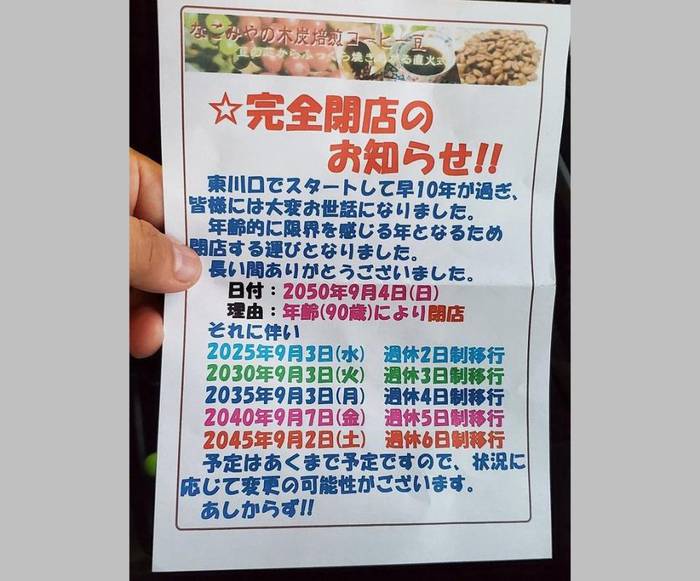 なごみやの木炭焙煎コーヒー豆
豆の芯からふっくら焼き上がる直火式
☆完全閉店の
お知らせ!!
東川口でスタートして早10年が過ぎ、
皆様には大変お世話になりました。
年齢的に限界を感じる年となるため
閉店する運びとなりました。
長い間ありがとうございました。
日付：2050年9月4日(日)
理由：年齢(90歳)により閉店
それに伴い
2025年9月3日(水) 週休2日制移行
2030年9月3日(火) 週休3日制移行
2035年9月3日(月) 週休4日制移行
2040年9月7日(金) 週休5日制移行
2045年9月2日(土) 週休6日制移行
予定はあくまで予定ですので、状況に
応じて変更の可能性がございます。
あしからず!!